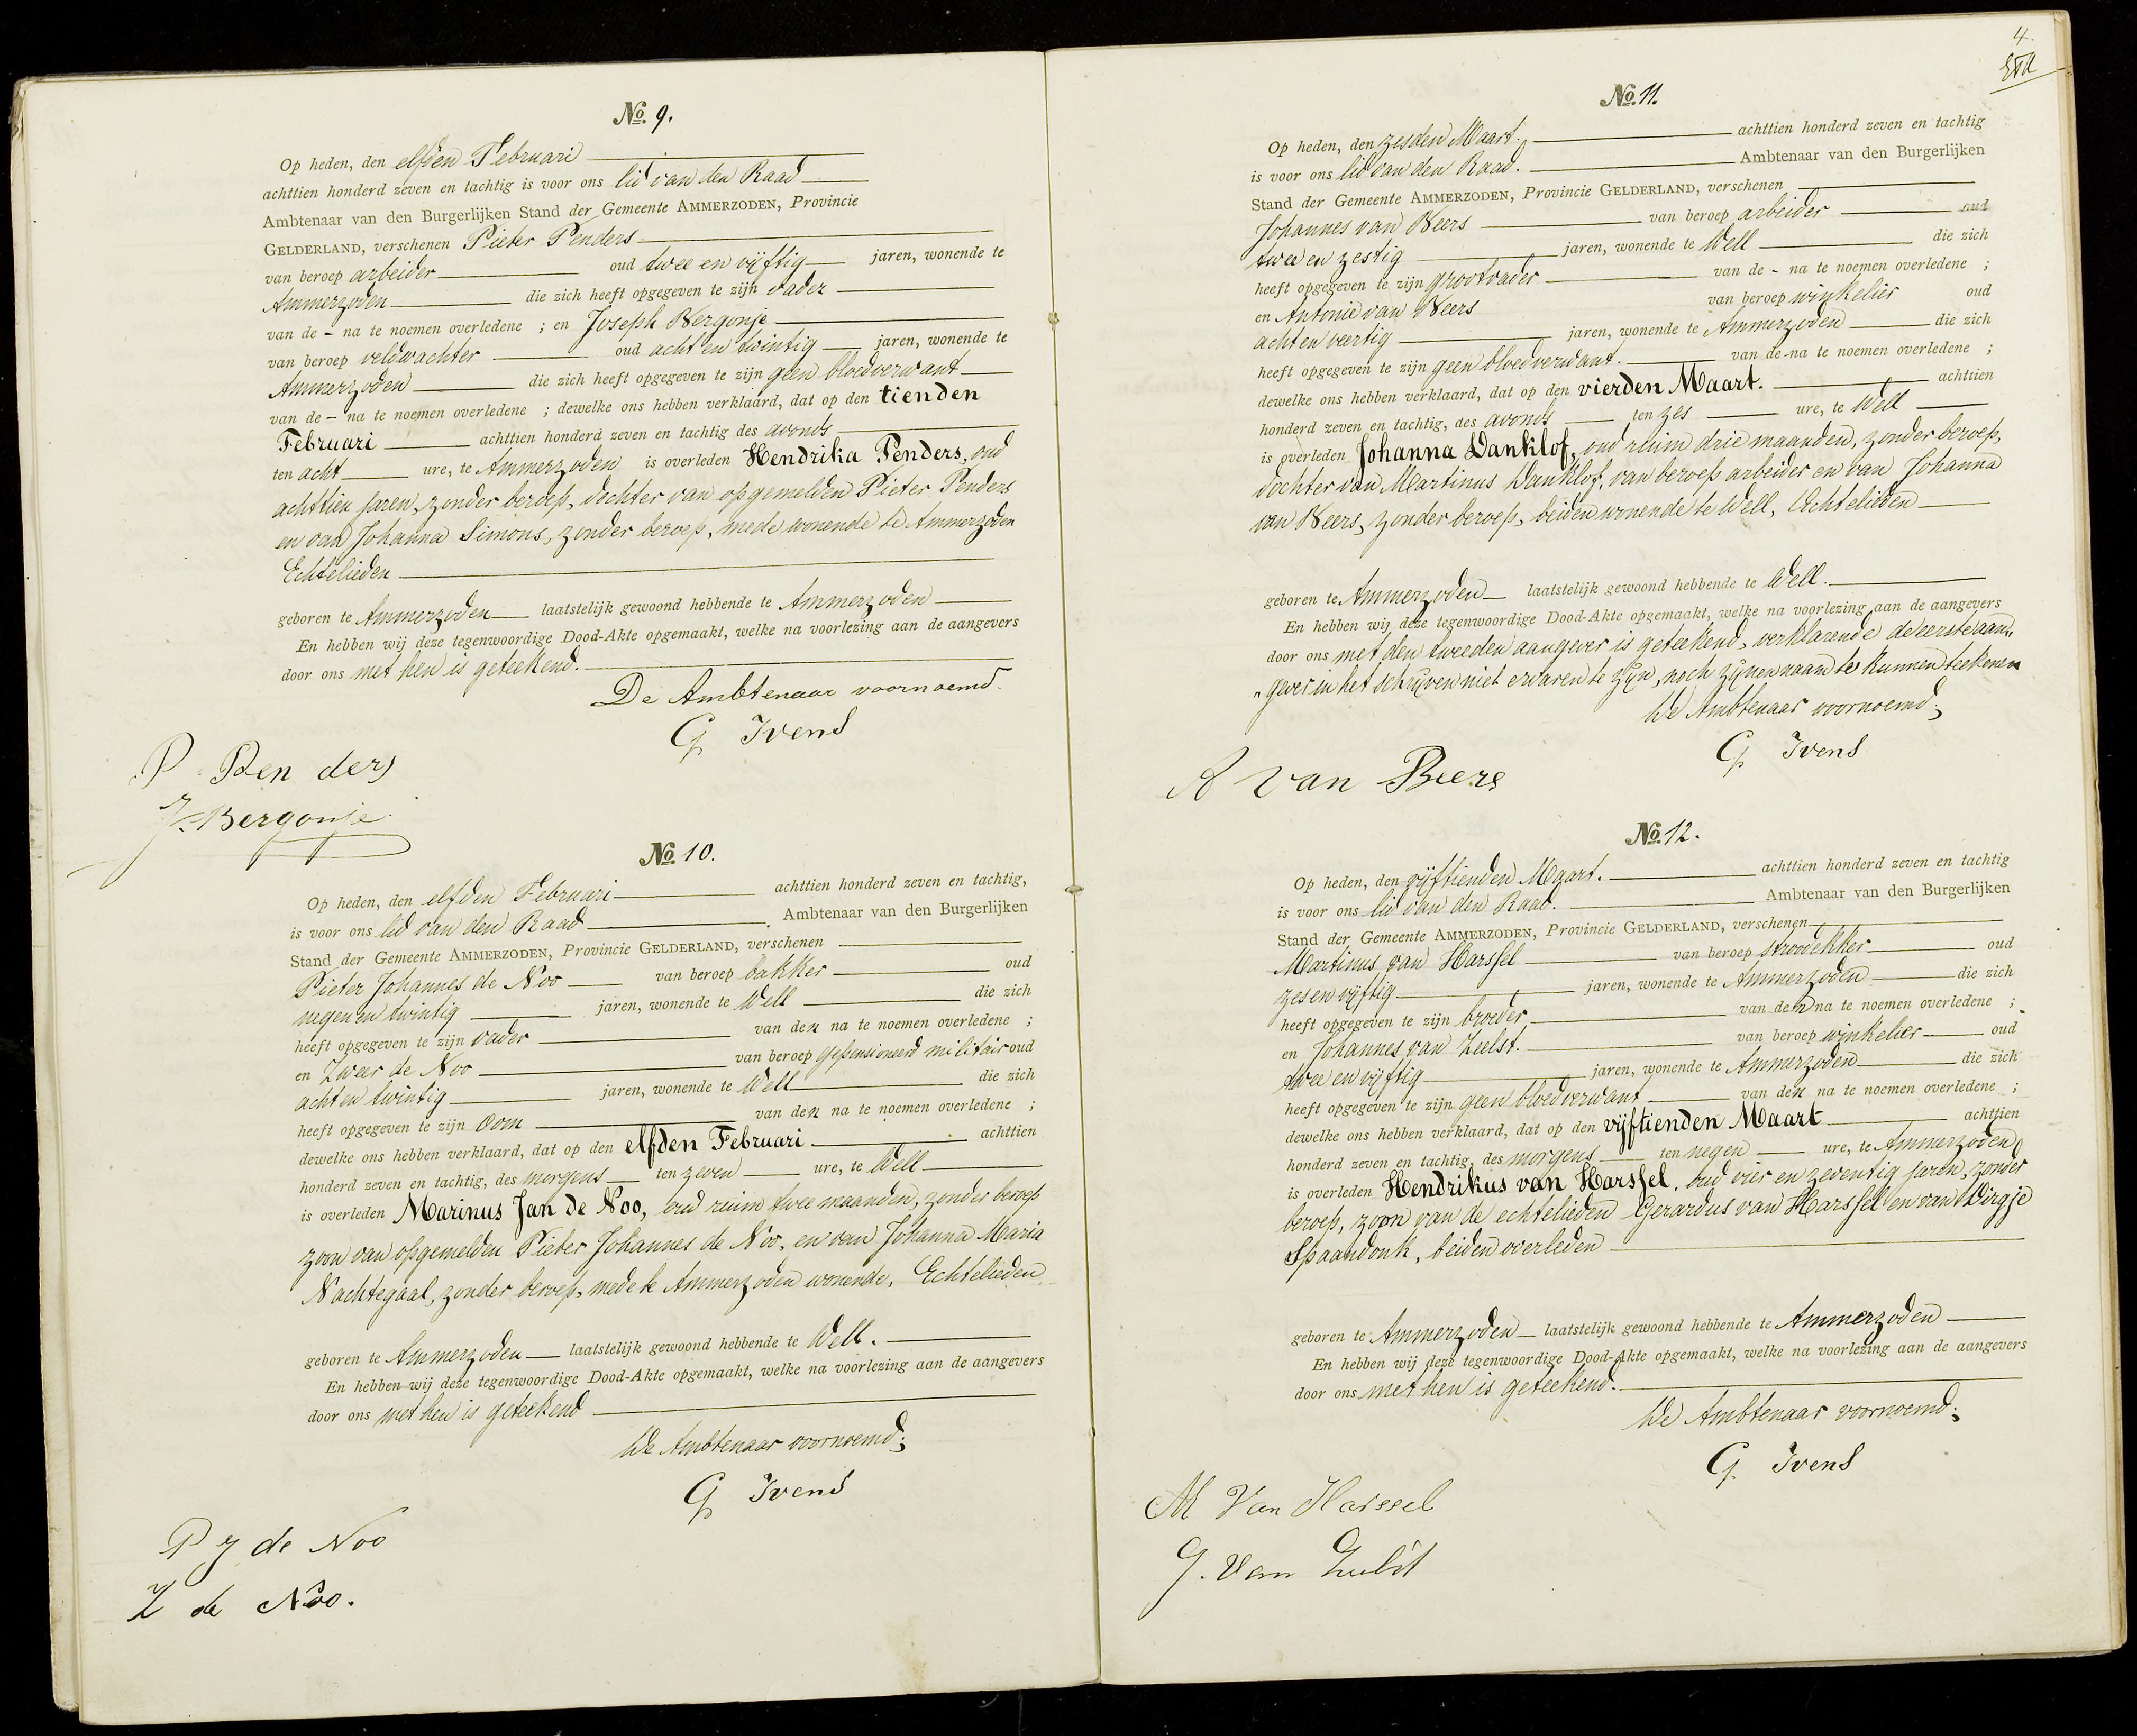 No. 9.
Op heden, den elfden Februari
achttien honderd zeven en tachtig is voor ons lid van den Raad
Ambtenaar van den Burgerlijken Stand der Gemeente AMMERZODEN, Provincie
GELDERLAND, verschenen Pieter Penders
van beroep arbeider oud twee en vijftig jaren, wonende te
Ammerzoden die zich heeft opgegeven te zijn vader
van de - na te noemen overledene ; en Joseph Bergonje
van beroep veldwachter oud acht en twintig jaren, wonende te
Ammerzoden die zich heeft opgegeven te zijn geen bloedverwant
van de - na te noemen overledene ; dewelke ons hebben verklaard, dat op den tienden
Februari achttien honderd zeven en tachtig des avonds
ten acht ure, te Ammerzoden is overleden Hendrika Penders, oud
achttien jaren, zonder beroep, dochter van opgemelden Pieter Penders
en van Johanna Simons, zonder beroep, mede wonende te Ammerzoden
Echtelieden
geboren te Ammerzoden laatstelijk gewoond hebbende te Ammerzoden
En hebben wij deze tegenwoordige Dood-Akte opgemaakt, welke na voorlezing aan de aangevers
door ons met hen is geteekend.
De Ambtenaar voornoemd.
G Ivens
P Penders
J. Bergonje
No. 10.
Op heden, den elfden Februari achttien honderd zeven en tachtig,
is voor ons lid van den Raad Ambtenaar van den Burgerlijken
Stand der Gemeente AMMERZODEN, Provincie GELDERLAND, verschenen
Pieter Johannes de Noo van beroep bakker oud
negen en twintig jaren, wonende te Well die zich
heeft opgegeven te zijn vader van den na te noemen overledene ;
en Zweer de Noo van beroep gepensioneerd militair oud
acht en twintig jaren, wonende te Well die zich
heeft opgegeven te zijn oom van den na te noemen overledene ;
dewelke ons hebben verklaard, dat op den elfden Februari achttien
honderd zeven en tachtig, des morgens ten zeven ure, te Well
is overleden Marinus Jan de Noo, oud ruim twee maanden, zonder beroep
zoon van opgemelden Pieter Johannes de Noo, en van Johanna Maria
Nachtegaal, zonder beroep, mede te Ammerzoden wonende, Echtelieden
geboren te Ammerzoden laatstelijk gewoond hebbende te Well.
En hebben wij deze tegenwoordige Dood-Akte opgemaakt, welke na voorlezing aan de aangevers
door ons met hen is geteekend
De Ambtenaar voornoemd;
G Ivens
P J de Noo
Z de Noo.
4.
No. 11.
Op heden, den zesden Maart. achttien honderd zeven en tachtig
is voor ons lid van den Raad. Ambtenaar van den Burgerlijken
Stand der Gemeente AMMERZODEN, Provincie GELDERLAND, verschenen
Johannes van Beers van beroep arbeider oud
twee en zestig jaren, wonende te Well die zich
heeft opgegeven te zijn grootvader van de - na te noemen overledene ;
en Antonie van Beers van beroep winkelier oud
acht en veertig jaren, wonende te Ammerzoden die zich
heeft opgegeven te zijn geen bloedverwant. van de - na te noemen overledene ;
dewelke ons hebben verklaard, dat op den vierden Maart. achttien
honderd zeven en tachtig, des avonds ten zes ure, te Well
is overleden Johanna Danklof, oud ruim drie maanden, zonder beroep,
dochter van Martinus Danklof, van beroep arbeider en van Johanna
van Beers, zonder beroep, beiden wonende te Well, Echtelieden
geboren te Ammerzoden laatstelijk gewoond hebbende te Well.
En hebben wij deze tegenwoordige Dood-Akte opgemaakt, welke na voorlezing aan de aangevers
door ons met den tweeden aangever is geteekend, verklarende de eerste aan„
„gever in het schrijven niet ervaren te zijn, noch zijnen naam te kunnen teekenen
De Ambtenaar voornoemd;
G Ivens
A van Beers
No. 12.
Op heden, den vijftienden Maart. achttien honderd zeven en tachtig
is voor ons lid van den Raad. Ambtenaar van den Burgerlijken
Stand der Gemeente AMMERZODEN, Provincie GELDERLAND, verschenen
Martinus van Harssel van beroep stroodekker oud
zes en vijftig jaren, wonende te Ammerzoden die zich
heeft opgegeven te zijn broeder, van den na te noemen overledene ;
en Johannes van Zeelst. van beroep winkelier oud
twee en vijftig jaren, wonende te Ammerzoden die zich
heeft opgegeven te zijn geen bloedverwant van den na te noemen overledene ;
dewelke ons hebben verklaard, dat op den vijftienden Maart achttien
honderd zeven en tachtig, des morgens ten negen ure, te Ammerzoden
is overleden Hendrikus van Harssel, oud vier en zeventig jaren, zonder
beroep, zoon van de echtelieden Gerardus van Harssel en van Dirgje
Spaandonk, beiden overleden
geboren te Ammerzoden laatstelijk gewoond hebbende te Ammerzoden
En hebben wij deze tegenwoordige Dood-Akte opgemaakt, welke na voorlezing aan de aangevers
door ons met hen is geteekend.
De Ambtenaar voornoemd;
G Ivens
M Van Harssel
J. Van